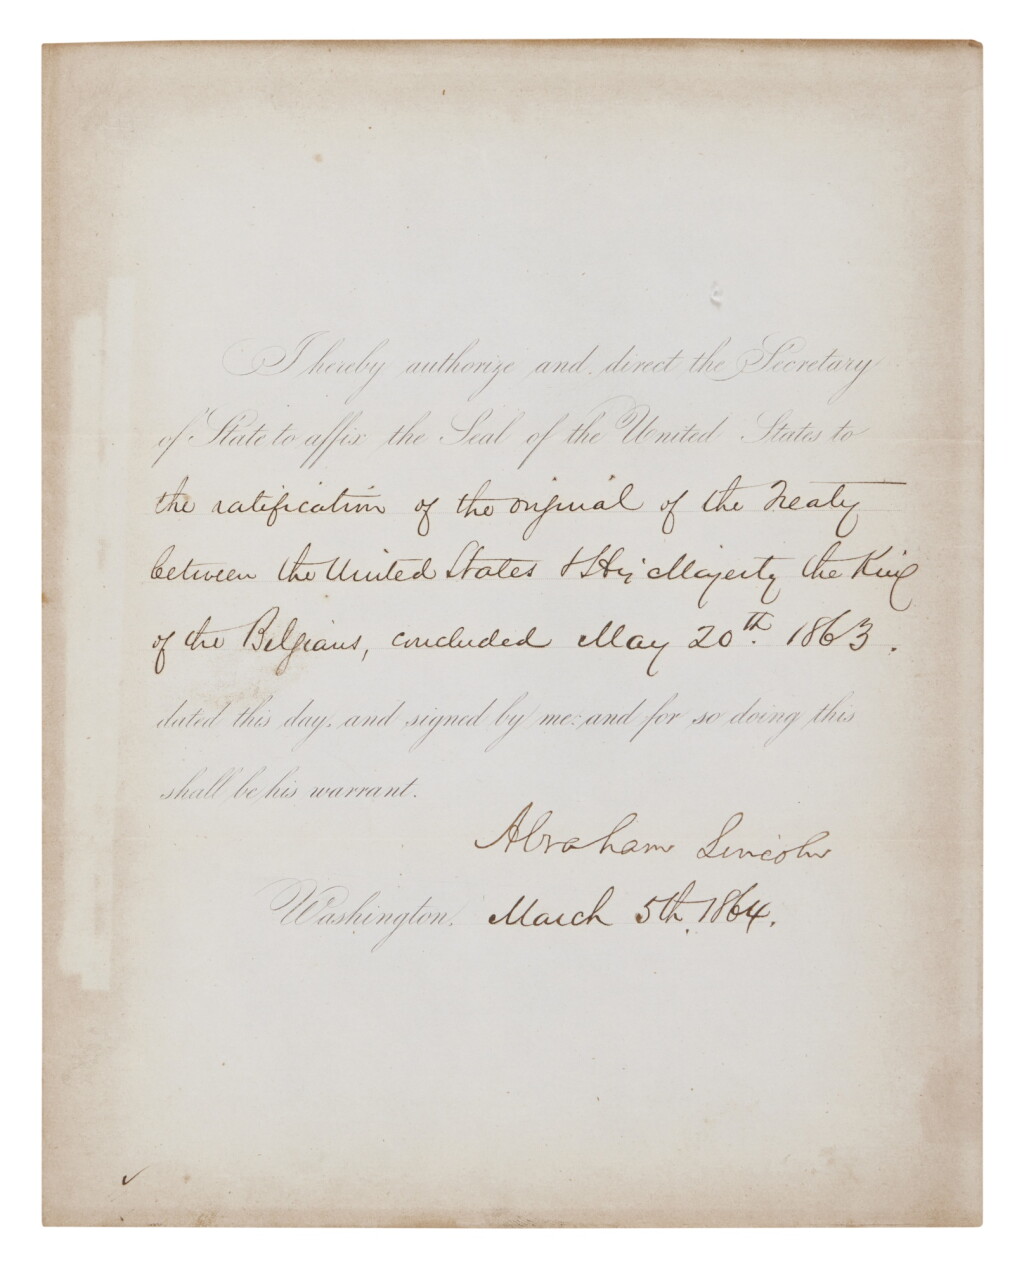 I hereby authorize and direct the Secretary
of State to affix the Seal of the United States to
the ratification of the original of the Treaty
between the United States & His Majesty the King
of the Belgians, concluded May 20th. 1863.
dated this day, and signed by me: and for so doing this
shall be his warrant.
Abraham Lincoln
Washington, March 5th, 1864.